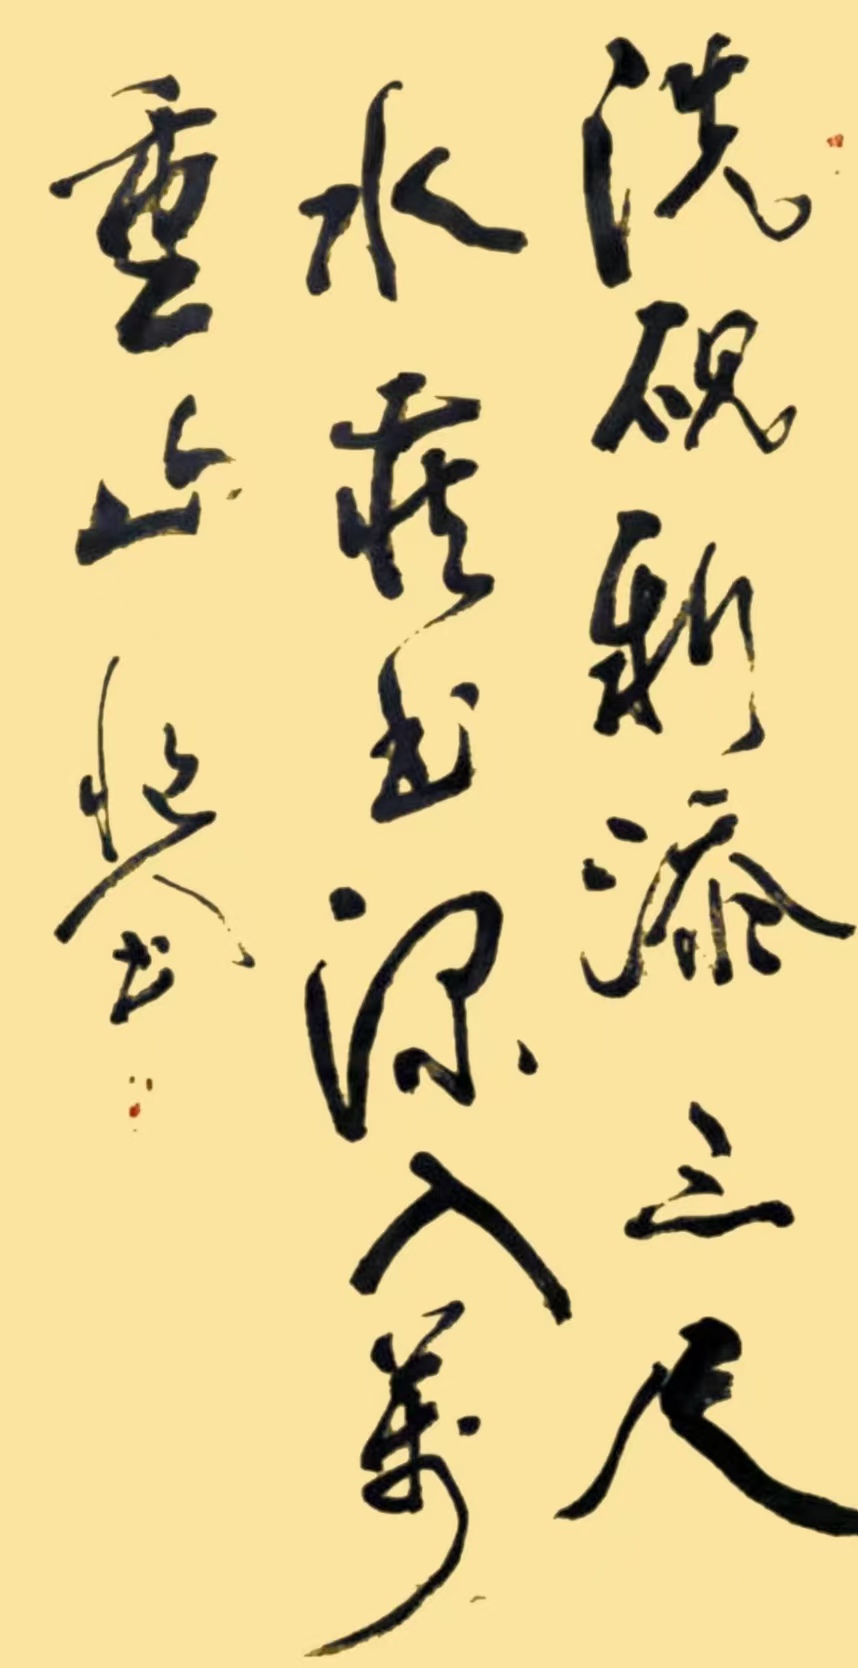 洗砚新添三尺
水藏书深入万
重山
书